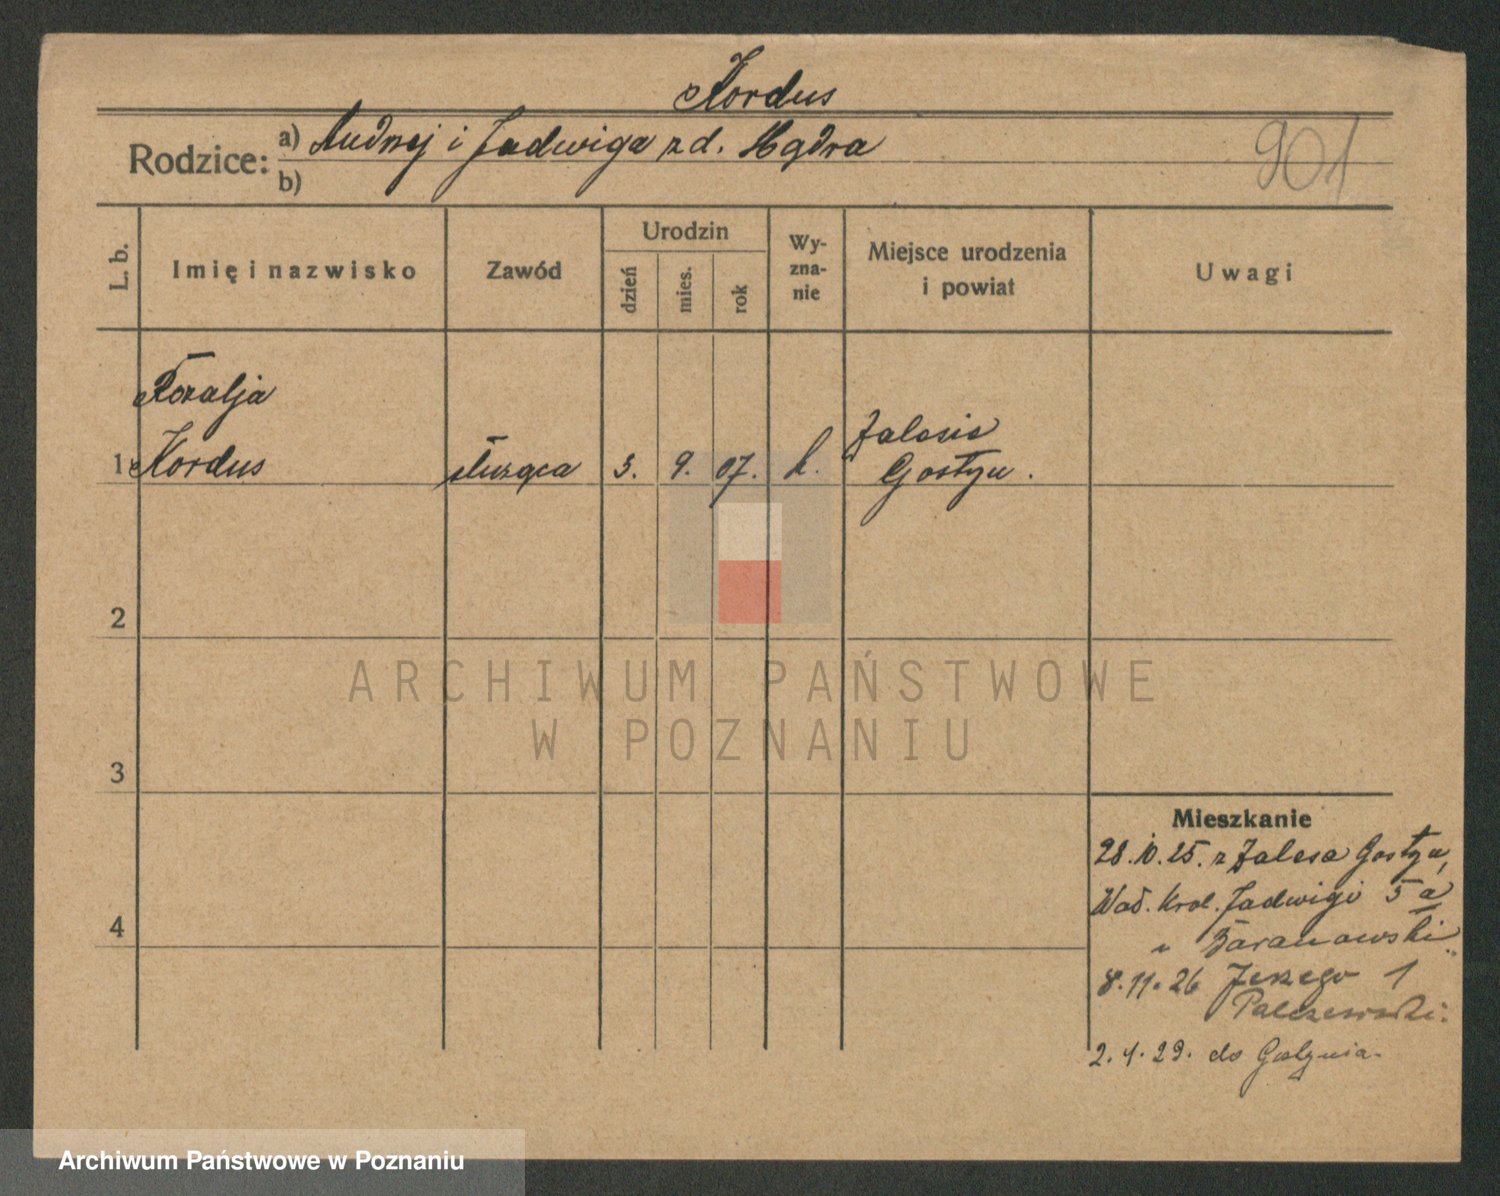 Kordus
Rodzice: a) Andrzej i Jadwiga z d. Mądra
b)
901
L. b.
Imię i nazwisko
Zawód
Urodzin
dzień
mies.
rok
Wy-
zna-
nie
Miejsce urodzenia
i powiat
Uwagi
Rozalja
1 Kordus służąca 3. 9. 07. k. Zalesie
Gostyń.
2
ARCHIWUM PAŃSTWOWE
W POZNANIU
3
4
Mieszkanie
28.10.25. z Zalesa Gostyń,
Wad. Król. Jadwigi 5a
u Baranowski
8.11.26 Jerzego 1
Palczewski.
2.4.29. do Gostynia.
Archiwum Państwowe w Poznaniu